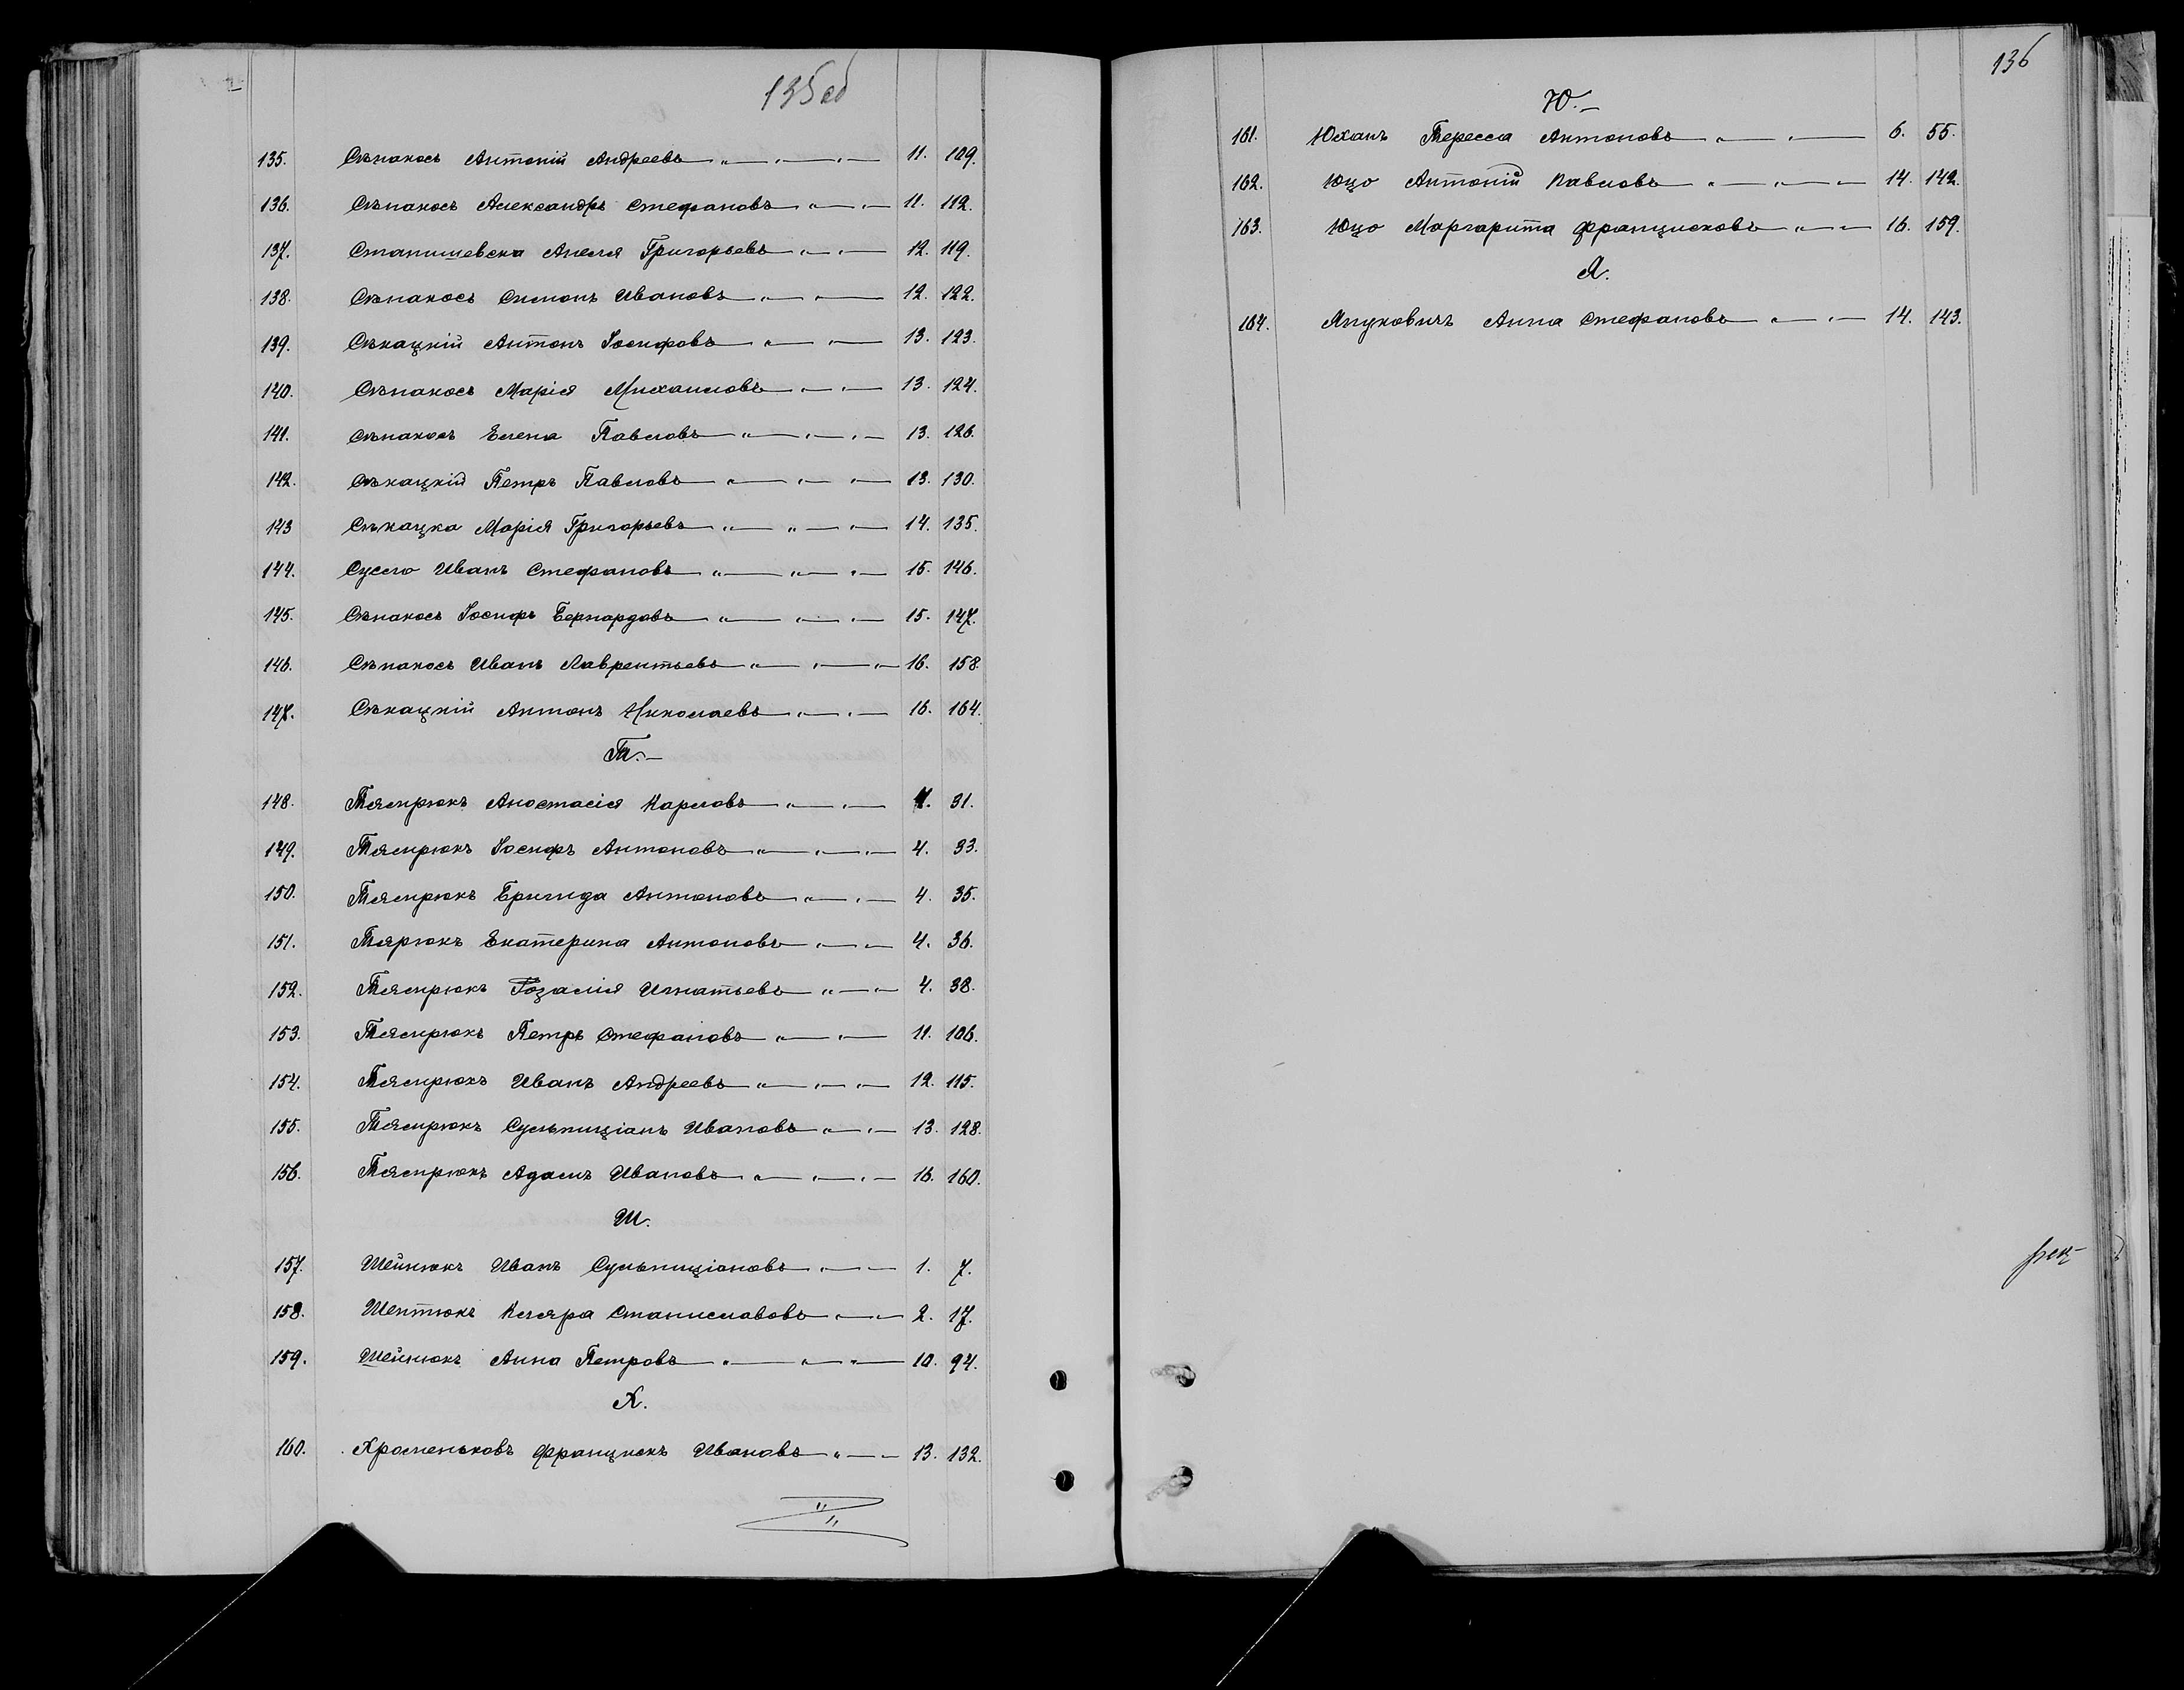 135об
135. Сѣпакосъ Антоній Андреевъ „ — „ — „ — 11. 109.
136. Сѣпакосъ Александръ Стефановъ „ — „ — 11. 112.
137. Станишевска Анеля Григорьевъ „ — „ — 12. 119.
138. Сѣпакосъ Симонъ Ивановъ „ — „ — 12. 122.
139. Сѣкацкій Антонъ Іосифовъ „ — „ — 13. 123.
140. Сѣпакосъ Марія Михаиловъ „ — „ — 13. 124.
141. Сѣпакосъ Елена Павловъ „ — „ — „ — 13. 126.
142. Сѣкацкій Петръ Павловъ „ — „ — „ — 13. 130.
143 Сѣкацка Марія Григорьевъ „ — „ — „ — 14. 135.
144. Сусло Иванъ Стефановъ „ — „ — „ — 15. 146.
145. Сѣпакосъ Іосифъ Бернардовъ „ — „ — „ — 15. 147.
146. Сѣпакосъ Иванъ Лаврентьевъ „ — „ — „ — 16. 158.
147. Сѣкацкій Антонъ Николаевъ „ — „ — 16. 164.
Т. —
148. Тяспрюкъ Аностасія Карловъ „ — „ — 4. 31.
149. Тяспрюкъ Іосифъ Антоновъ „ — „ — „ — 4. 33.
150. Тяспрюкъ Бригида Антоновъ „ — „ — 4. 35.
151. Тярюкъ Екатерина Антоновъ „ — „ — 4. 36.
152. Тяспрюкъ Розалія Игнатьевъ „ — „ — 4. 38.
153. Тяспрюкъ Петръ Стефановъ „ — „ — 11. 106.
154. Тяспрюкъ Иванъ Андреевъ „ — „ — „ — 12. 115.
155. Тяспрюкъ Сульпиціанъ Ивановъ „ — „ — 13. 128.
156. Тяспрюкъ Адамъ Ивановъ „ — „ — „ — 16. 160.
Ш.
157. Шейнюкъ Иванъ Сульпиціановъ „ — „ — 1. 7.
158. Шептюкъ Кляра Станиславовъ „ — „ — 2. 17.
159. Шейнюкъ Анна Петровъ „ — „ — „ — 10. 94.
Х.
160. Хроменьковъ Францискъ Ивановъ „ — „ — 13. 132.
136
Ю. —
161. Юханъ Тересса Антоновъ „ — „ — 6. 55.
162. Юцо Антоній Павловъ „ — „ — „ — 14. 142.
163. Юцо Маргарита Францисковъ „ — „ — 16. 159.
Я.
164. Януковичъ Анна Стефановъ „ — „ — 14. 143.